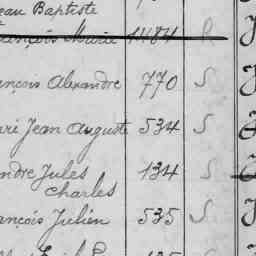 ean Baptiste
François Marie 1484 R
ançois Alexandre 770 S
arie Jean Auguste 534 S
ndre Jules 134 S
Charles
ançois Julien 535 S